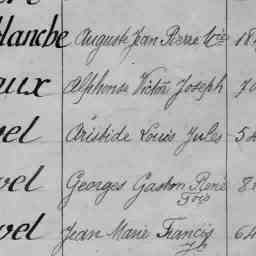 lanche Auguste Jean Pierre Fois 18
aux Alphonse Victor Joseph 70
vel Aristide Louis Jules 54
vel Georges Gaston René 8
Fois
vel Jean Marie Francis 64